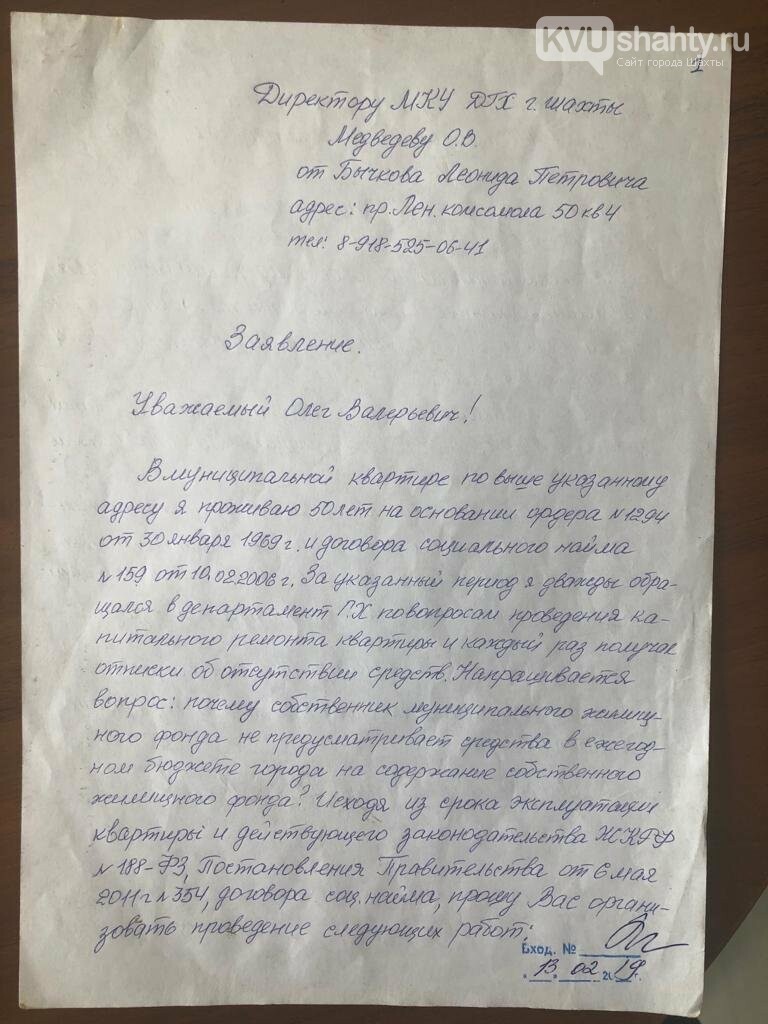 KVUshahty.ru
Сайт города Шахты
1
Директору МКУ ДГХ г. Шахты
Медведеву О.В.
от Бычкова Леонида Петровича
адрес: пр. Лен. комсомола 50 кв 4
тел: 8-918-525-06-41
Заявление.
Уважаемый Олег Валерьевич!
В муниципальной квартире по выше указанному
адресу я проживаю 50 лет на основании ордера №1294
от 30 января 1969 г. и договора социального найма
№159 от 10.02.2006 г. За указанный период я дважды обра-
щался в департамент Г.Х по вопросам проведения ка-
питального ремонта квартиры и каждый раз получал
отписки об отсутствии средств. Напрашивается
вопрос: почему собственник муниципального жилищ-
ного фонда не предусматривает средства в ежегод-
ном бюджете города на содержание собственного
жилищного фонда? Исходя из срока эксплуатации
квартиры и действующего законодательства ЖКРФ
№188-ФЗ, Постановления Правительства от 6 мая
2011 г №354, договора соц. найма, прошу Вас органи-
зовать проведение следующих работ:
Вход. №
13. 02 2019г.